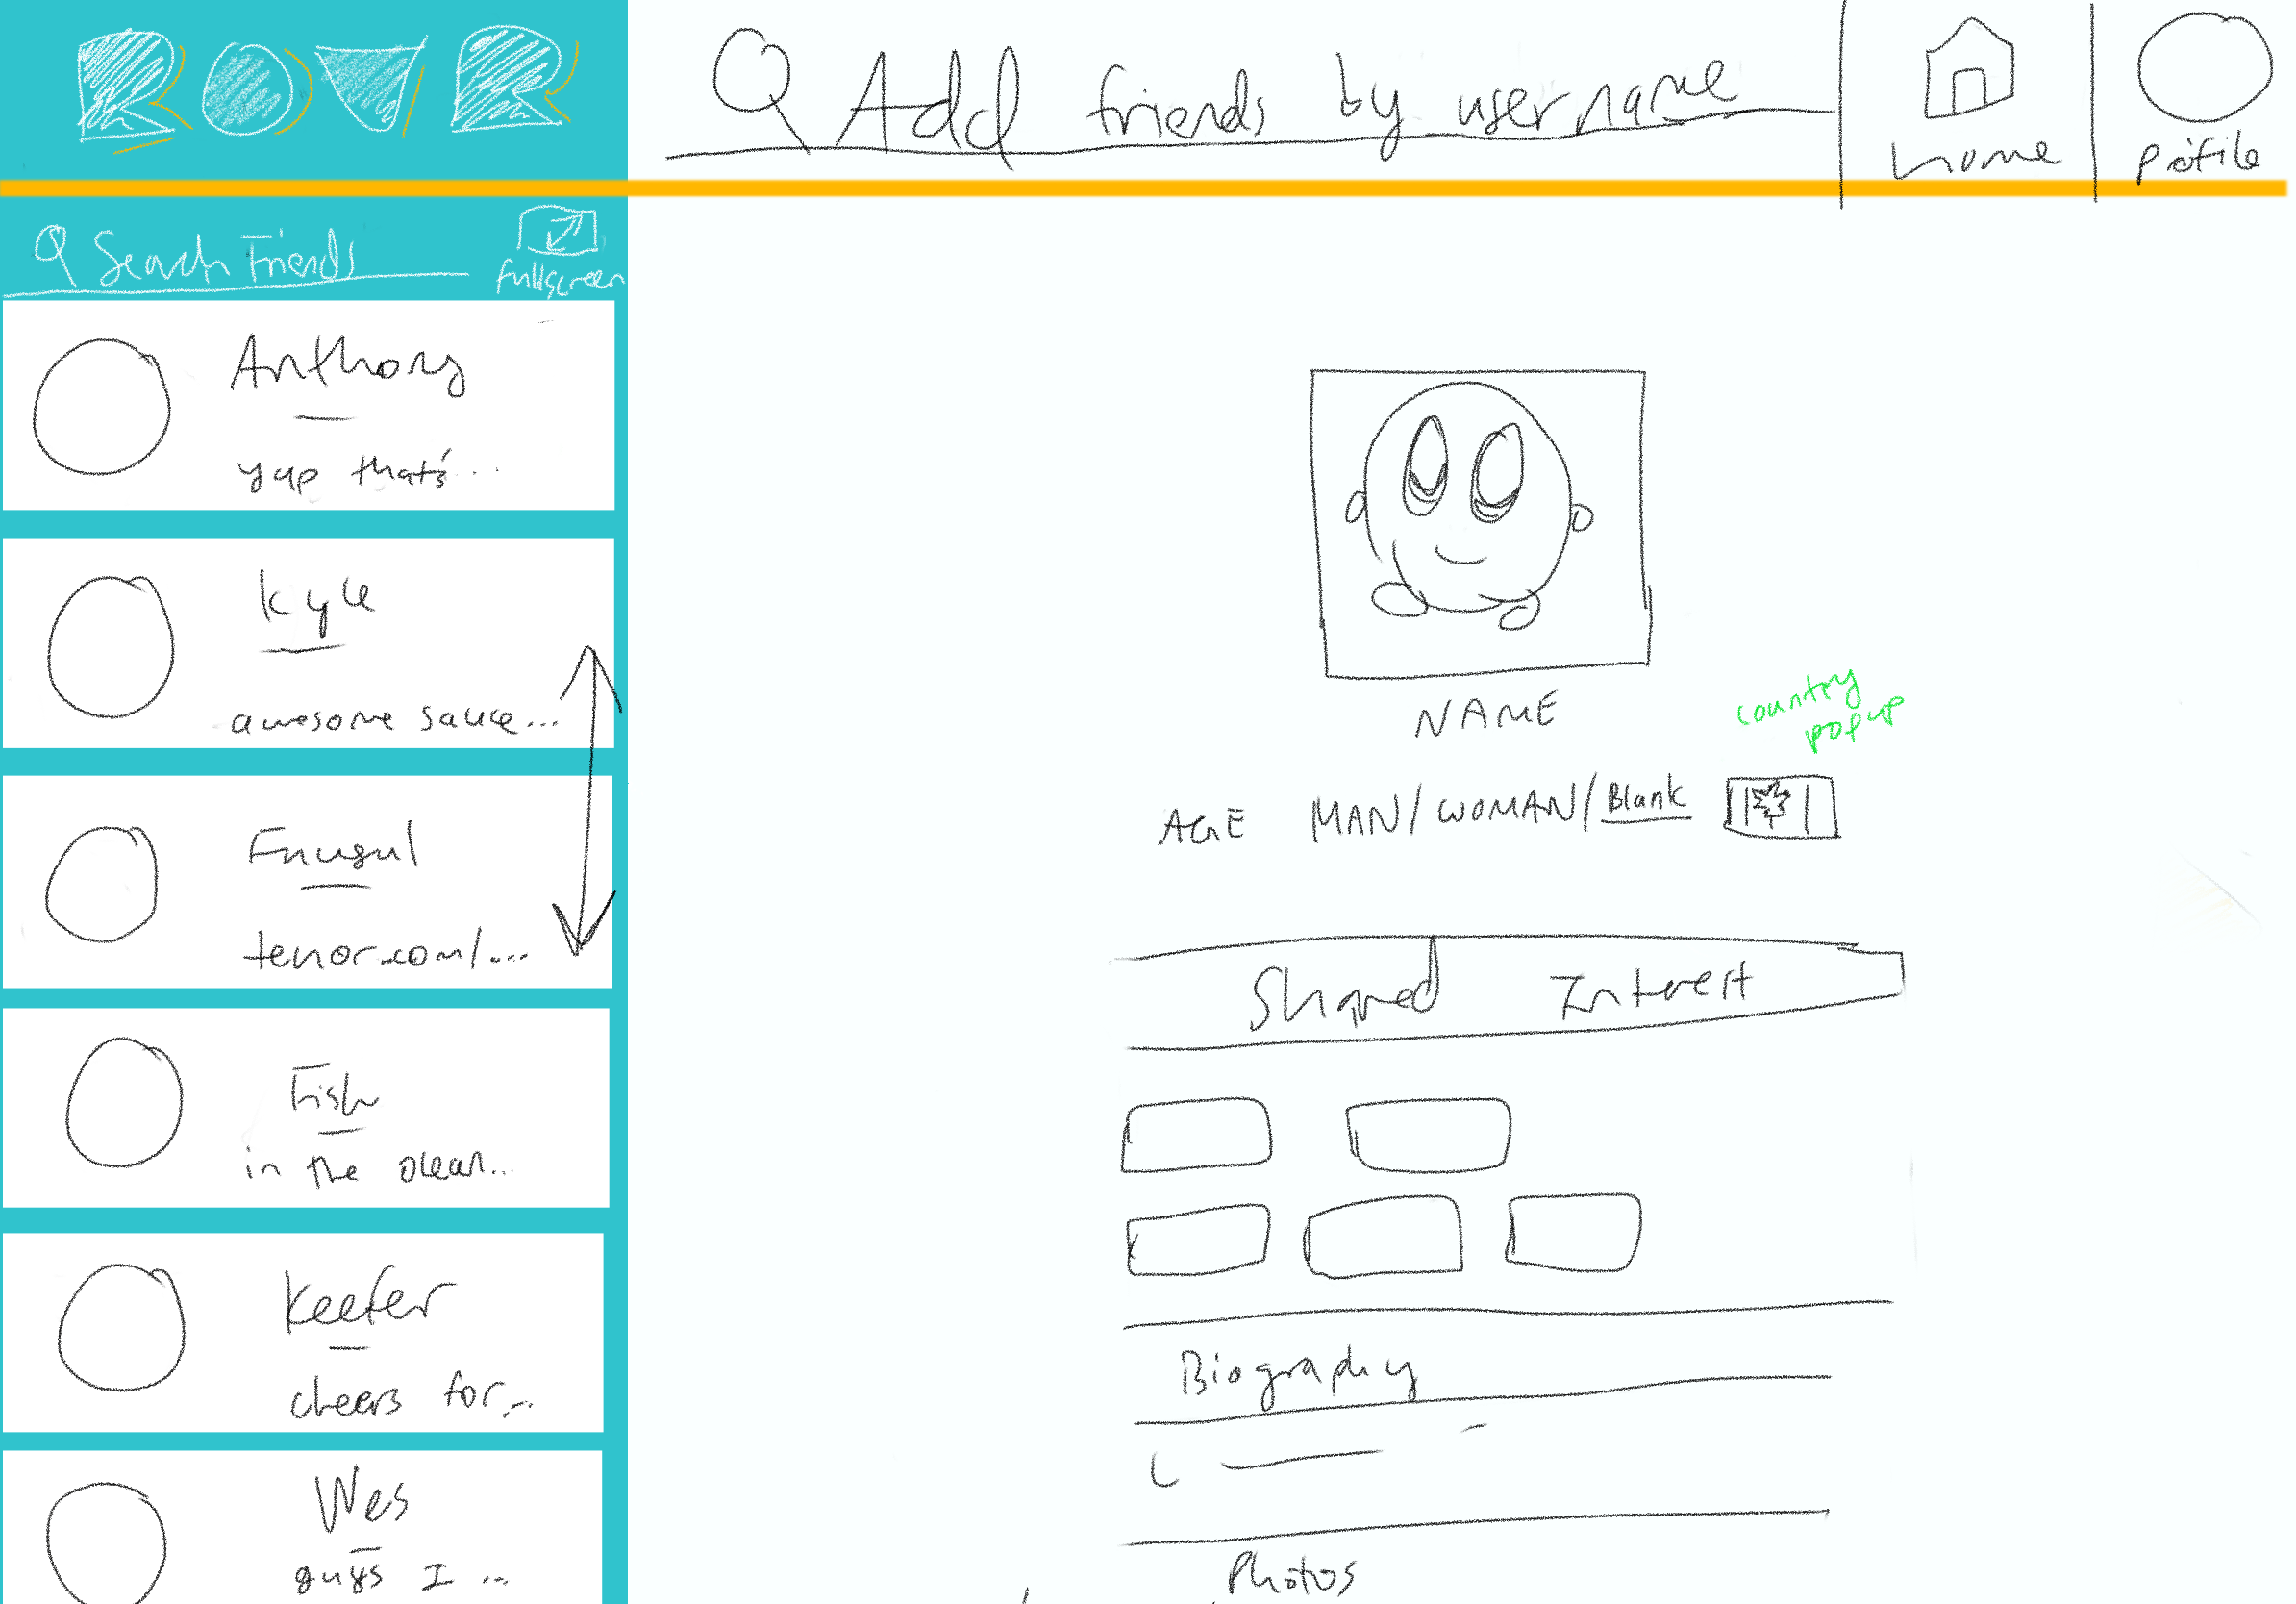 ROVR
Add friends by username
home
profile
Search Friends
fullscreen
Anthony
yap that's...
Kyle
awesome sauce...
tenor.com/...
Fish
in the ocean...
Keefer
cheers for...
Wes
guys I ...
NAME
country
popup
AGE MAN/WOMAN/Blank
Shared Interest
Biography
Photos